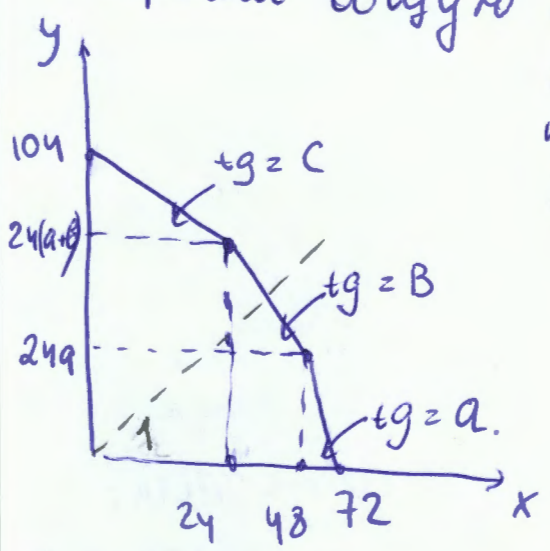 y
104
tg = C
24(a+b)
tg = B
24a
tg = a.
1
24 48 72
x